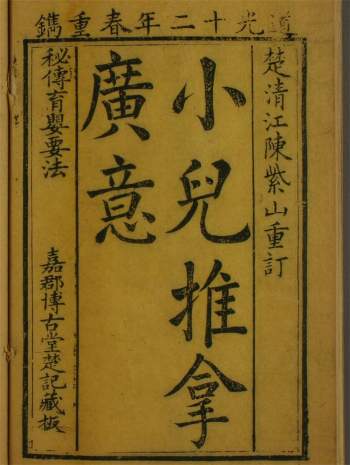 道光十二年春重鐫
楚清江陳紫山重訂
小兒推拿
廣意
秘傳育嬰要法
嘉郡博古堂楚記藏板